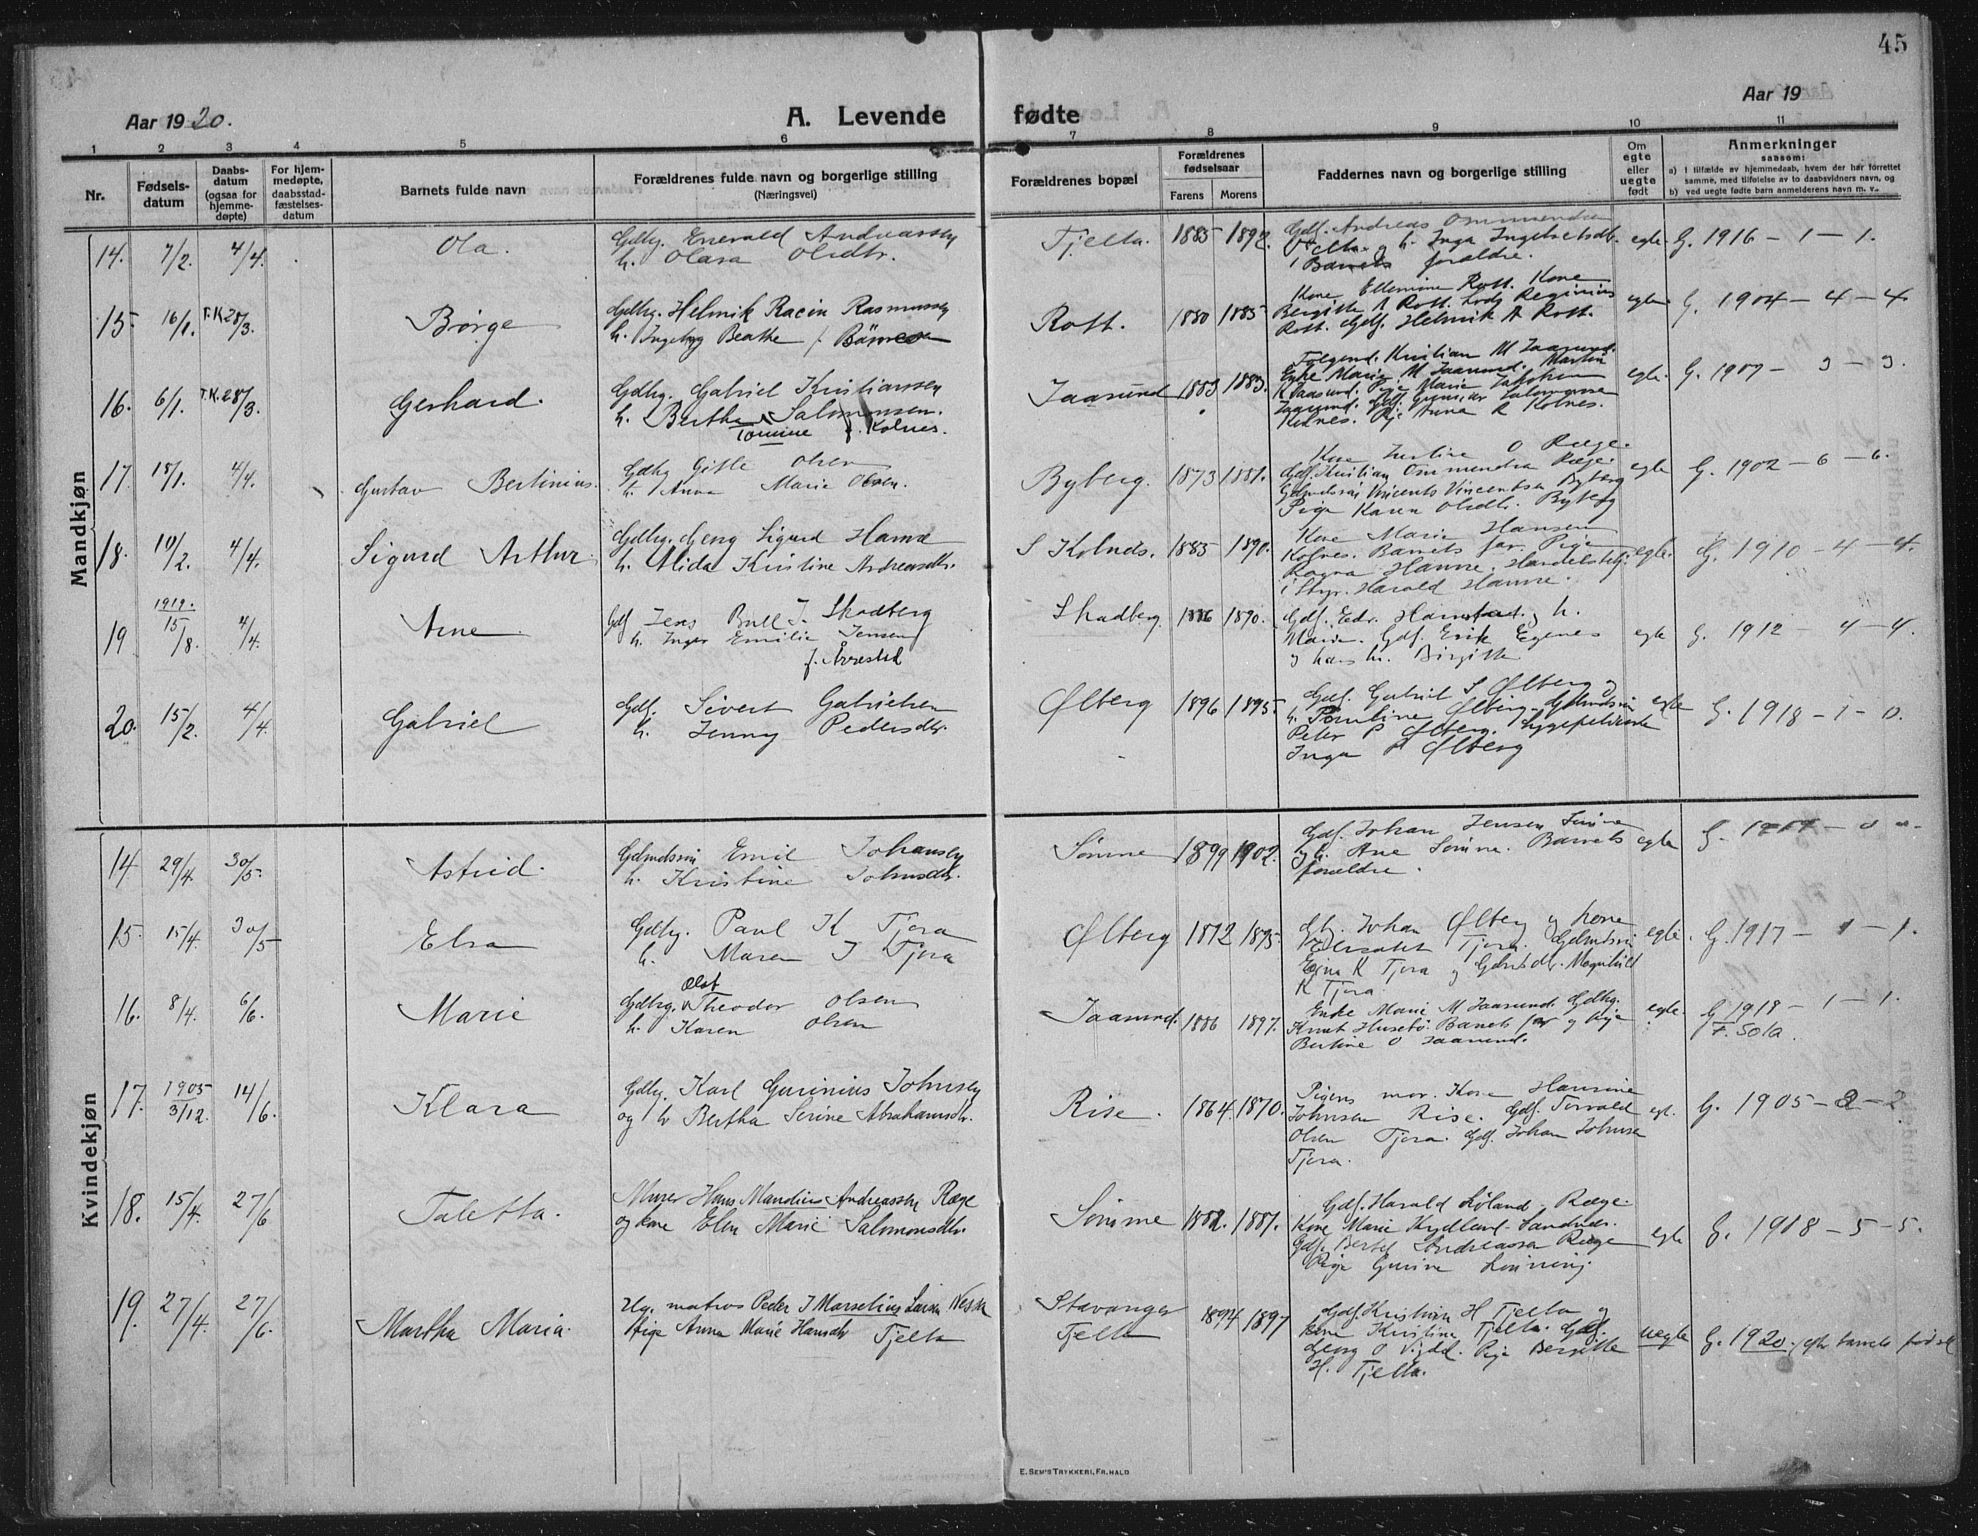 45
Aar 1920.
A. Levende
fødte
Aar 19
1 2 3 4 5 6 7 8 9 10 11
Nr.
Fødsels-
datum
Daabs-
datum
(ogsaa for
hjemme-
døpte)
For hjem-
medøpte,
daabsstad-
fæstelses-
datum
Barnets fulde navn
Forældrenes fulde navn og borgerlige stilling
(Næringsvei)
Forældrenes bopæl
Forældrenes
fødselsaar
Farens Morens
Faddernes navn og borgerlige stilling
Om
egte
eller
uegte
født
Anmerkninger
saasom:
a) i tilfælde av hjemmedaab, hvem der har forrettet
samme, med tilføielse av to daabsvidners navn, og
b) ved uegte fødte barn anmelderens navn m. v.
Mandkjøn
14. 7/2. 4/4. Ola. Gdbg. Enevald Andreassen
h. Olava Olsdtr. Tjelta. 1885 1892. Gdf. Andreas Ommundsen
Tjelta og h. Inga Ingebretsdtr.
Barnets forældre. egte G. 1916 - 1 - 1.
15. 16/1. T.K. 28/3. Børge Gdbg. Helmik Racin Rasmussen
h. Ingeborg Beathe Rott. 1880 1885 Kone Ellemine Rott. Kone
Bergitte A Rott. Lods Reginius
Rott. Gdf. Helmik A Rott. egte G. 1904 - 4 - 4
16. 6/1. T.K. 28/3. Gerhard. Gdbg. Gabriel Kristianssen
h. Bertha Salomonsen.
Tomine f. Kolnes. Jaasund 1883 1883. Kristian M Jaasund.
Enke Marie M Jaasund. Martin
K Jaasund. Pige Marie Jakobsen
Jaasund. Gdf. Gunnar Salomonsen
Kolnes. Pige Anna R Kolnes. egte. G. 1907 - 3 - 3.
17. 18/1. 4/4. Gustav Bertinius. Gdbg Gitle Olsen
h. Anna Marie Olsen. Byberg. 1873 1881. Kone O Ræge.
Gdf. Kristian Ommundsen Ræge.
Gdmdssøn Vincents Vincentsen Byberg
Pige Karen Olsdtr. Byberg egte G. 1902 - 6 - 6.
18. 10/2. 4/4. Sigurd Arthur. Gdbg. Georg Sigurd Hamre
h. Alida Kristine Andreasdtr. S Kolnes. 1883 1890. Kone Marie Hansen
Kolnes. Barnets far. Pige
Ragna Hamre. Handelsbetj.
Harald Hamre. egte. G. 1910 - 4 - 4.
19 1919. 15/8. 4/4 Arne Gdf Jens Bull J. Skadberg
h. Inger Emilie Jensen
f. Årrestad Skadberg. 1886 1890. Gdf. Edv. og h.
Marie. Gdf. Erik Egenes
og hans h. Birgitte egte G. 1912 - 4 - 4.
20. 15/2. 4/4. Gabriel Gdf. Sivert Gabrielsen
h. Jenny Pedersdtr. Ølberg 1896 1895. Gdf. Gabriel S Ølberg og
h. Ølberg. Gdmdssøn
Peter P Ølberg.
Inga P Ølberg egte G. 1918 - 1 - 0.
Kvindekjøn
14 29/4. 30/5. Astrid. Gdmdssøn Emil Johansen
h. Kristine Johnsdtr. Sømme 1899 1902. Gdf. Johan Jensen Sømme
og h. Ane Sømme. Barnets
forældre. egte G.
15. 15/4. 30/5 Elsa Gdbg. Paul K Tjora
h. Maren I Tjora Ølberg 1872 1895. Gdbg. Johan Ølberg og kone
Elisabet Tjora. Gdmdssøn
K Tjora og Gdmdsdtr. Magnhild
K Tjora. egte. G. 1917 - 1 - 1.
16. 8/4. 6/6. Marie Gdbg. Theodor Olsen
h. Karen Olsen Jaasund. 1886 1897. Enke Marie M Jaasund. Gdbg.
Knut Husebø. Barnets far og Pige
Bertine O Jaasund. egte. G 1918 - 1 - 1.
F. Sola.
17. 1905 3/12. 14/6. Klara Gdbg. Karl Gurinius Johnsen
og h Bertha Serine Abrahamsdtr. Rise. 1864. 1870. Pigens mor. Kone Hansine
Johnsen Rise. Gdf. Torvald
Olsen Tjora. Gdf. Johan Johnsen
Tjora. egt. G. 1905 - 2 - 2
18. 15/4. 27/6 Taletta. Murer Hans Mandius Andreassen Ræge
og kone Elen Marie Salomonsdtr. Sømme 1882. 1887. Gdf. Harald Løland, Ræge.
Kone Marie Kydland Sandnes.
Gdf. Bertel Andreassen Ræge
Pige Gurine Lønning. egte G. 1908 - 5 - 5.
19. 27/4. 27/6. Martha Maria. Ug. matros Peder I Marselius Larsen
Pige Anna Marie Hansdtr Tjelta Stavanger
Tjelta 1894 1897 Gdf. Kristian H Tjelta og
kone Kristine Tjelta. Gdf.
Georg O Vigdel. Pige Bergitte
H. Tjelta. uegte G. 1920. efter barnets fødsel
E. SEM'S TRYKKERI, FR.HALD